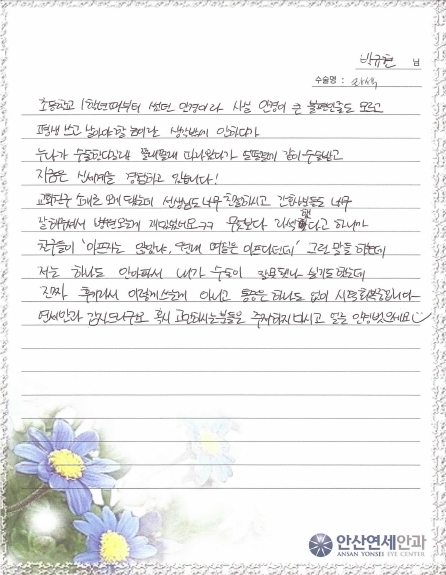 박규현 님
수술명 : 라섹
초등학교 1학년때부터 썼던 안경이라 사실 안경이 큰 불편인줄도 모르고
평생 쓰고 살아야할 몸이라 생각하며 살다가
누나가 수술한다길래 따라왔다가 같이 수술받고
지금은 신세계를 경험하고 있습니다!
교회친구 소개로 오게 됐는데 선생님도 너무 친절하시고 간호사분들도 너무
잘해주셔서 병원오는게 재밌었네요ㅋㅋ 무엇보다 라섹했다고 하니까
친구들이 '아프지는 않았냐, 연대 여동은 아프다던데' 그런 말을 하는데
저는 하나도 안아파서 내가 수술이 잘못됐나 싶기도 했는데
진짜 후기라서 이렇게쓰는게 아니고 통증은 하나도 없이 시력회복을 했습니다~
연세안과 감사드리구요 혹시 고민하시는분들은 주저하지 마시고 얼른 안경벗으세요
안산연세안과
ANSAN YONSEI EYE CENTER